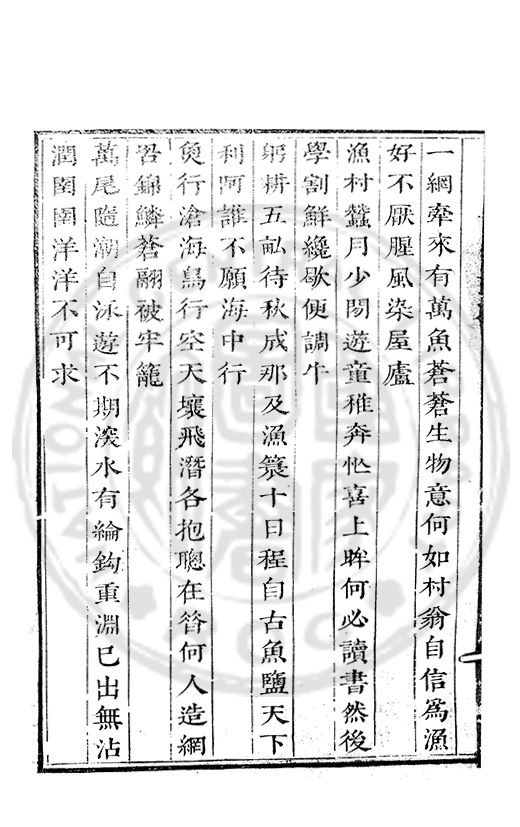 一網牽來有萬魚蒼蒼生物意何如村翁自信爲漁
好不厭腥風染屋廬
漁村蠶月少閒遊童稚奔忙喜上眸何必讀書然後
學割鮮纔歇便調牛
躬耕五畝待秋成那及漁簑十日程自古魚鹽天下
利阿誰不願海中行
魚行滄海鳥行空天壤飛潛各抱聰在昔何人造網
罟錦鱗蒼翮被牢籠
萬尾隨潮自泳遊不期淡水有綸鈎重淵已出無沾
潤圉圉洋洋不可求